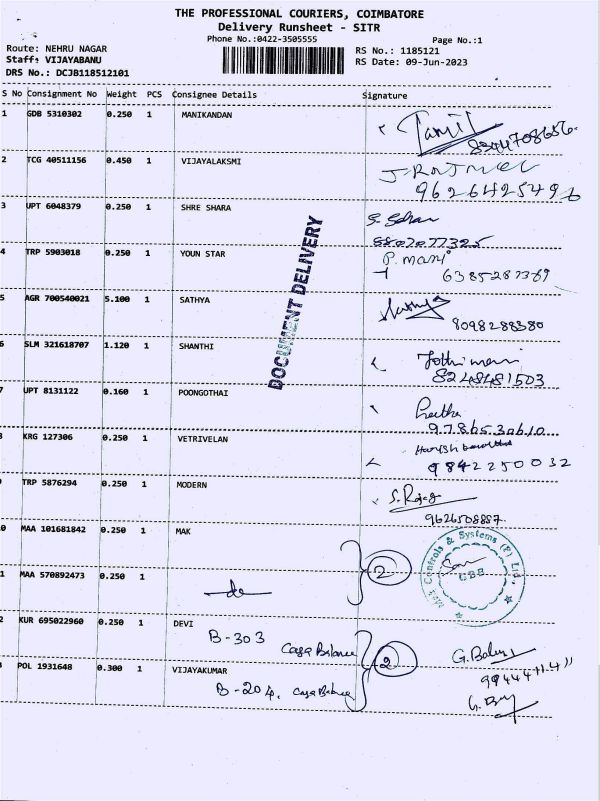 THE PROFESSIONAL COURIERS, COIMBATORE
Delivery Runsheet - SITR
Phone No.:0422-3505555 Page No.:1
Route: NEHRU NAGAR RS No.: 1185121
Staff: VIJAYABANU RS Date: 09-Jun-2023
DRS No.: DCJB118512101
S No Consignment No Weight PCS Consignee Details Signature
1 GDB 5310302 0.250 1 MANIKANDAN Tamil
8344708656
2 TCG 40511156 0.450 1 VIJAYALAKSMI
9626425496
3 UPT 6048379 0.250 1 SHRE SHARA
8807077325
4 TRP 5903018 0.250 1 YOUN STAR P. mani
6385287369
5 AGR 700540021 5.100 1 SATHYA Sathya
8098288380
6 SLM 321618707 1.120 1 SHANTHI Jothi mani
8248481503
7 UPT 8131122 0.160 1 POONGOTHAI
9786530610
8 KRG 127306 0.250 1 VETRIVELAN Harish
9842250032
TRP 5876294 0.250 1 MODERN S. Raja
9626508857
0 MAA 101681842 0.250 1 MAK 2
1 MAA 570892473 0.250 1 do
2 KUR 695022960 0.250 1 DEVI
B-303 Casa 2
POL 1931648 0.300 1 VIJAYAKUMAR
B-204. Casa
DOCUMENT DELIVERY
Controls & Systems (P) Ltd.,
CBE